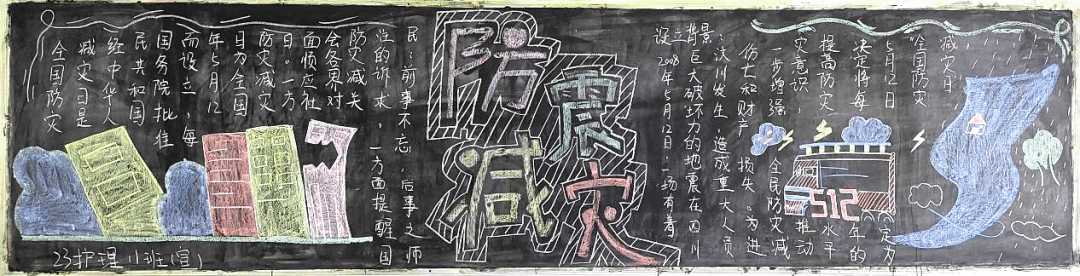 全国防灾
减灾日是
经中华人
民共和国
国务院批准
而设立,每
年5月12
日为全国
防灾减灾
日。一方
面顺应社
会各界对
防灾减关
注的诉求,一方面提醒国
民:前事不忘,后事之师
防震减灾
设立背景:
2008年5月12日,一场有着
巨大破坏力的地震在四川
汶川发生,造成重大人员
伤亡和财产损失。为进
一步增强全民防灾减
灾意识,推动
提高防灾水平
决定将每年的
5月12日定为
全国防灾
减灾日
512
23护理11班(宣)